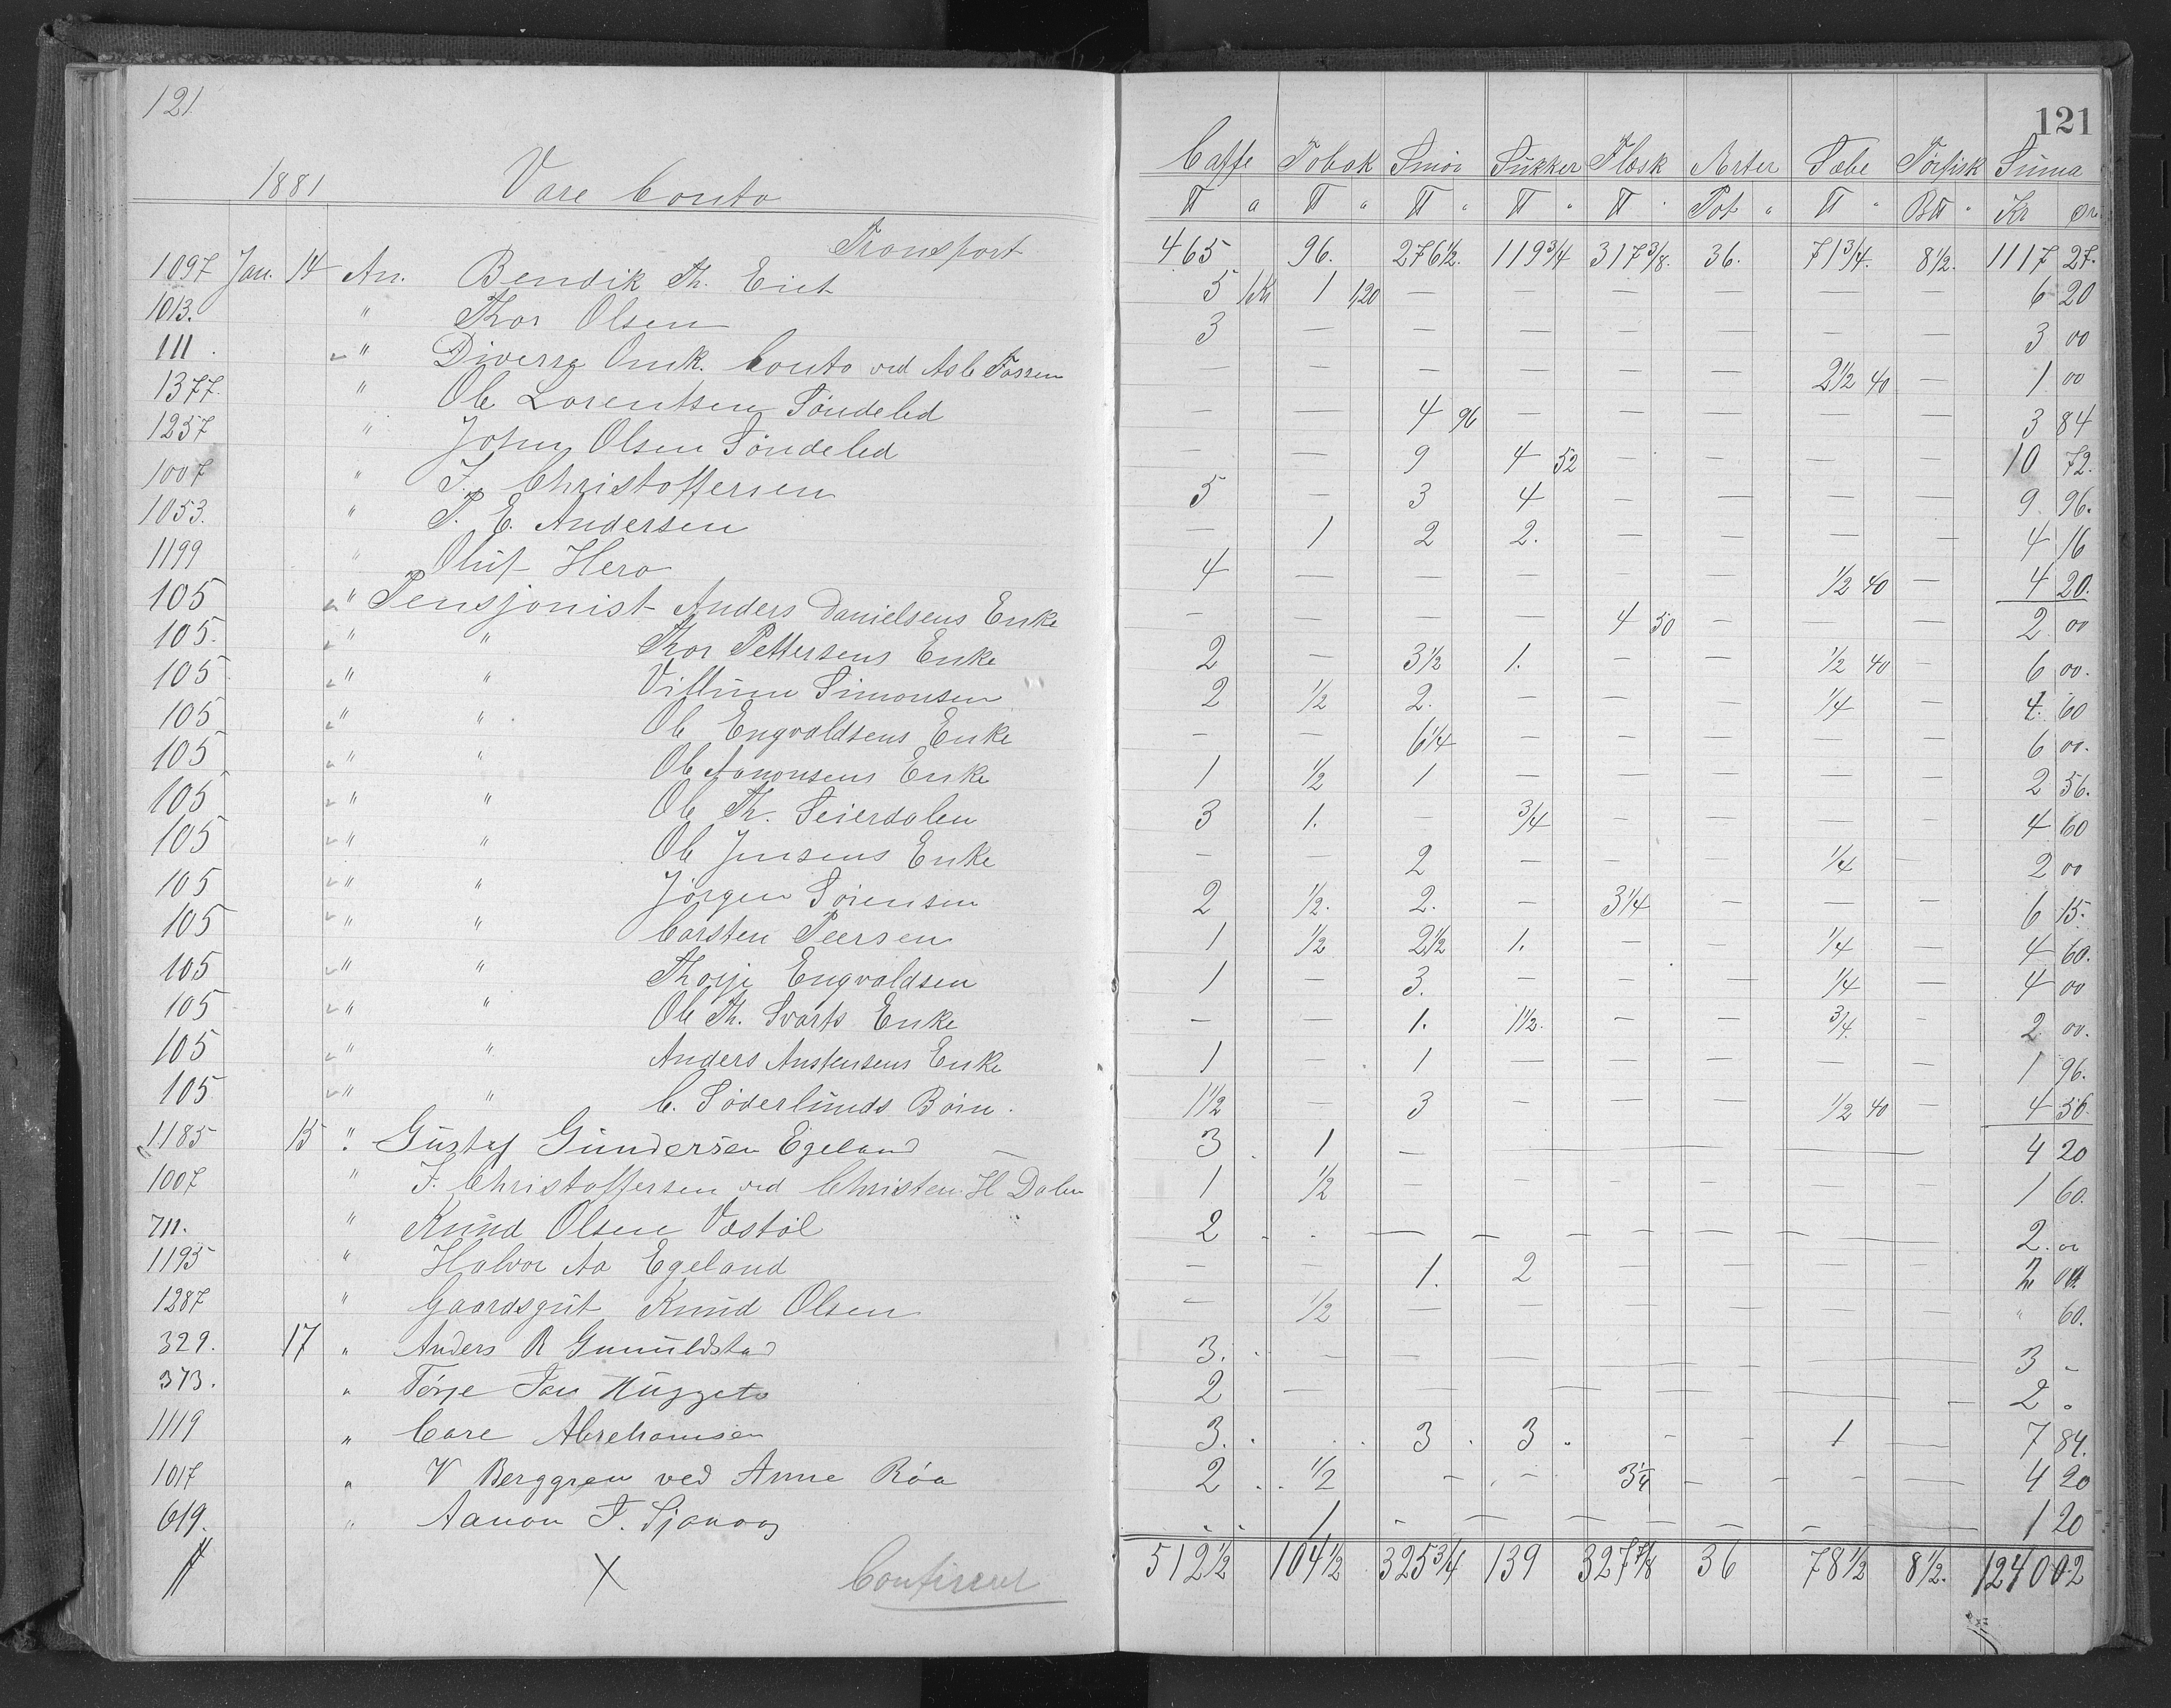 121
121
1881 Vare Conto
Caffe Tobak Smör Sukker Flæsk Arter Sæbe Törfisk Suma
℔ a ℔ " ℔ " ℔ " ℔ " Pot " ℔ " B℔ " Kr ør
Transport 465 96. 276 1/2. 119 3/4 317 3/8. 36. 71 3/4. 8 1/2. 1117 27.
1097 Jan. 14 An. Bendik Th. Eiet 5 1Kr 1 1,20 — — — — — — 6 20
1013. " Thor Olsen 3 — — — — — — — 3 00
111. " Diverse Omk. Conto ved Asle Fossen — — — — — — 2 1/2 40 — 1 00
1377. " Ole Lorentsen Söndeled — — 4 96 — — — — — 3 84
1257 " John Olsen Söndeled — — 9 4 52 — — — — 10 72.
1007 " J. Christoffersen 5 — 3 4 — — — — 9 96.
1053. " P. E. Andersen — 1 2 2. — — — — 4 16
1199 " Oluf Hero 4 — — — — — 1/2 40 — 4 20.
105 " Pensjonist Anders Danielsens Enke — — — — 4 50 — — — 2 00
105. " " Thor Pettersens Enke 2 — 3 1/2 1. — — 1/2 40 — 6 00.
105 " " Villum Simonsen 2 1/2 2. — — — 1/4 — 4. 60
105 " " Ole Engvaldsens Enke — — 6 1/4 — — — — — 6 00.
105 " " Ole Aanonsens Enke 1 1/2 1 — — — — — 2 56.
105 " " Ole Th. Seierdalen 3 1. — 3/4 — — — — 4 60
105 " " Ole Jensens Enke — — 2 — — — 1/4 — 2 00
105 " " Jörgen Sörensen 2 1/2. 2. — 3 1/4 — — — 6 15.
105 " " Carsten Peersen 1 1/2 2 1/2 1. — — 1/4 — 4 60.
105 " " Thorje Engvaldsen 1 — 3. — — — 1/4 — 4 00
105 " " Ole Th. Svarts Enke — — 1. 1 1/2. — — 3/4. — 2 00.
105 " " Anders Anstensens Enke 1 — 1 — — — — — 1 96.
105 " " C. Söderlunds Börn. 1 1/2 — 3 — — — 1/2 40 — 4 56.
1185 15 " Gustaf Gundersen Egeland 3 1 — — — — — — 4 20
1007 " J. Christoffersen ved Christen H Dalen 1 1/2 — — — — — — 1 60.
711. " Knud Olsen Vastöl 2 — — — — — — 2. 00
1195 " Halvor Aa Egeland — — 1. 2 — — — — 2 00
1287 " Gaardsgut Knud Olsen — 1/2 — — — — — — " 60.
329. 17 " Anders R Gunuldstad 3. — — — — — — — 3 "
373. " Törje Jan 2 — — — — 2 "
1119 " Care Abrehamsen 3. 3 3 — — 1 — 7 84.
1017 " V Berggren ved Anne Röa 2 1/2 — — 3 1/4 — — — 4 20
619. " Aanon T. Sjanaas 1 — — — — — — 1 20
X 512 1/2 104 1/2 325 3/4 139 327 7/8 36 78 1/2 8 1/2. 1240 02
Confireret